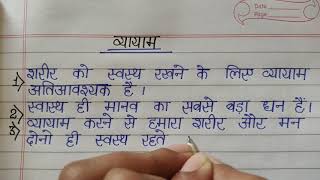 Date
Page
व्यायाम
1) शरीर को स्वस्थ रखने के लिए व्यायाम
अतिआवश्यक है ।
2) स्वास्थ ही मानव का सबसे बड़ा धन हैं।
3) व्यायाम करने से हमारा शरीर और मन
दोनो ही स्वस्थ रहते